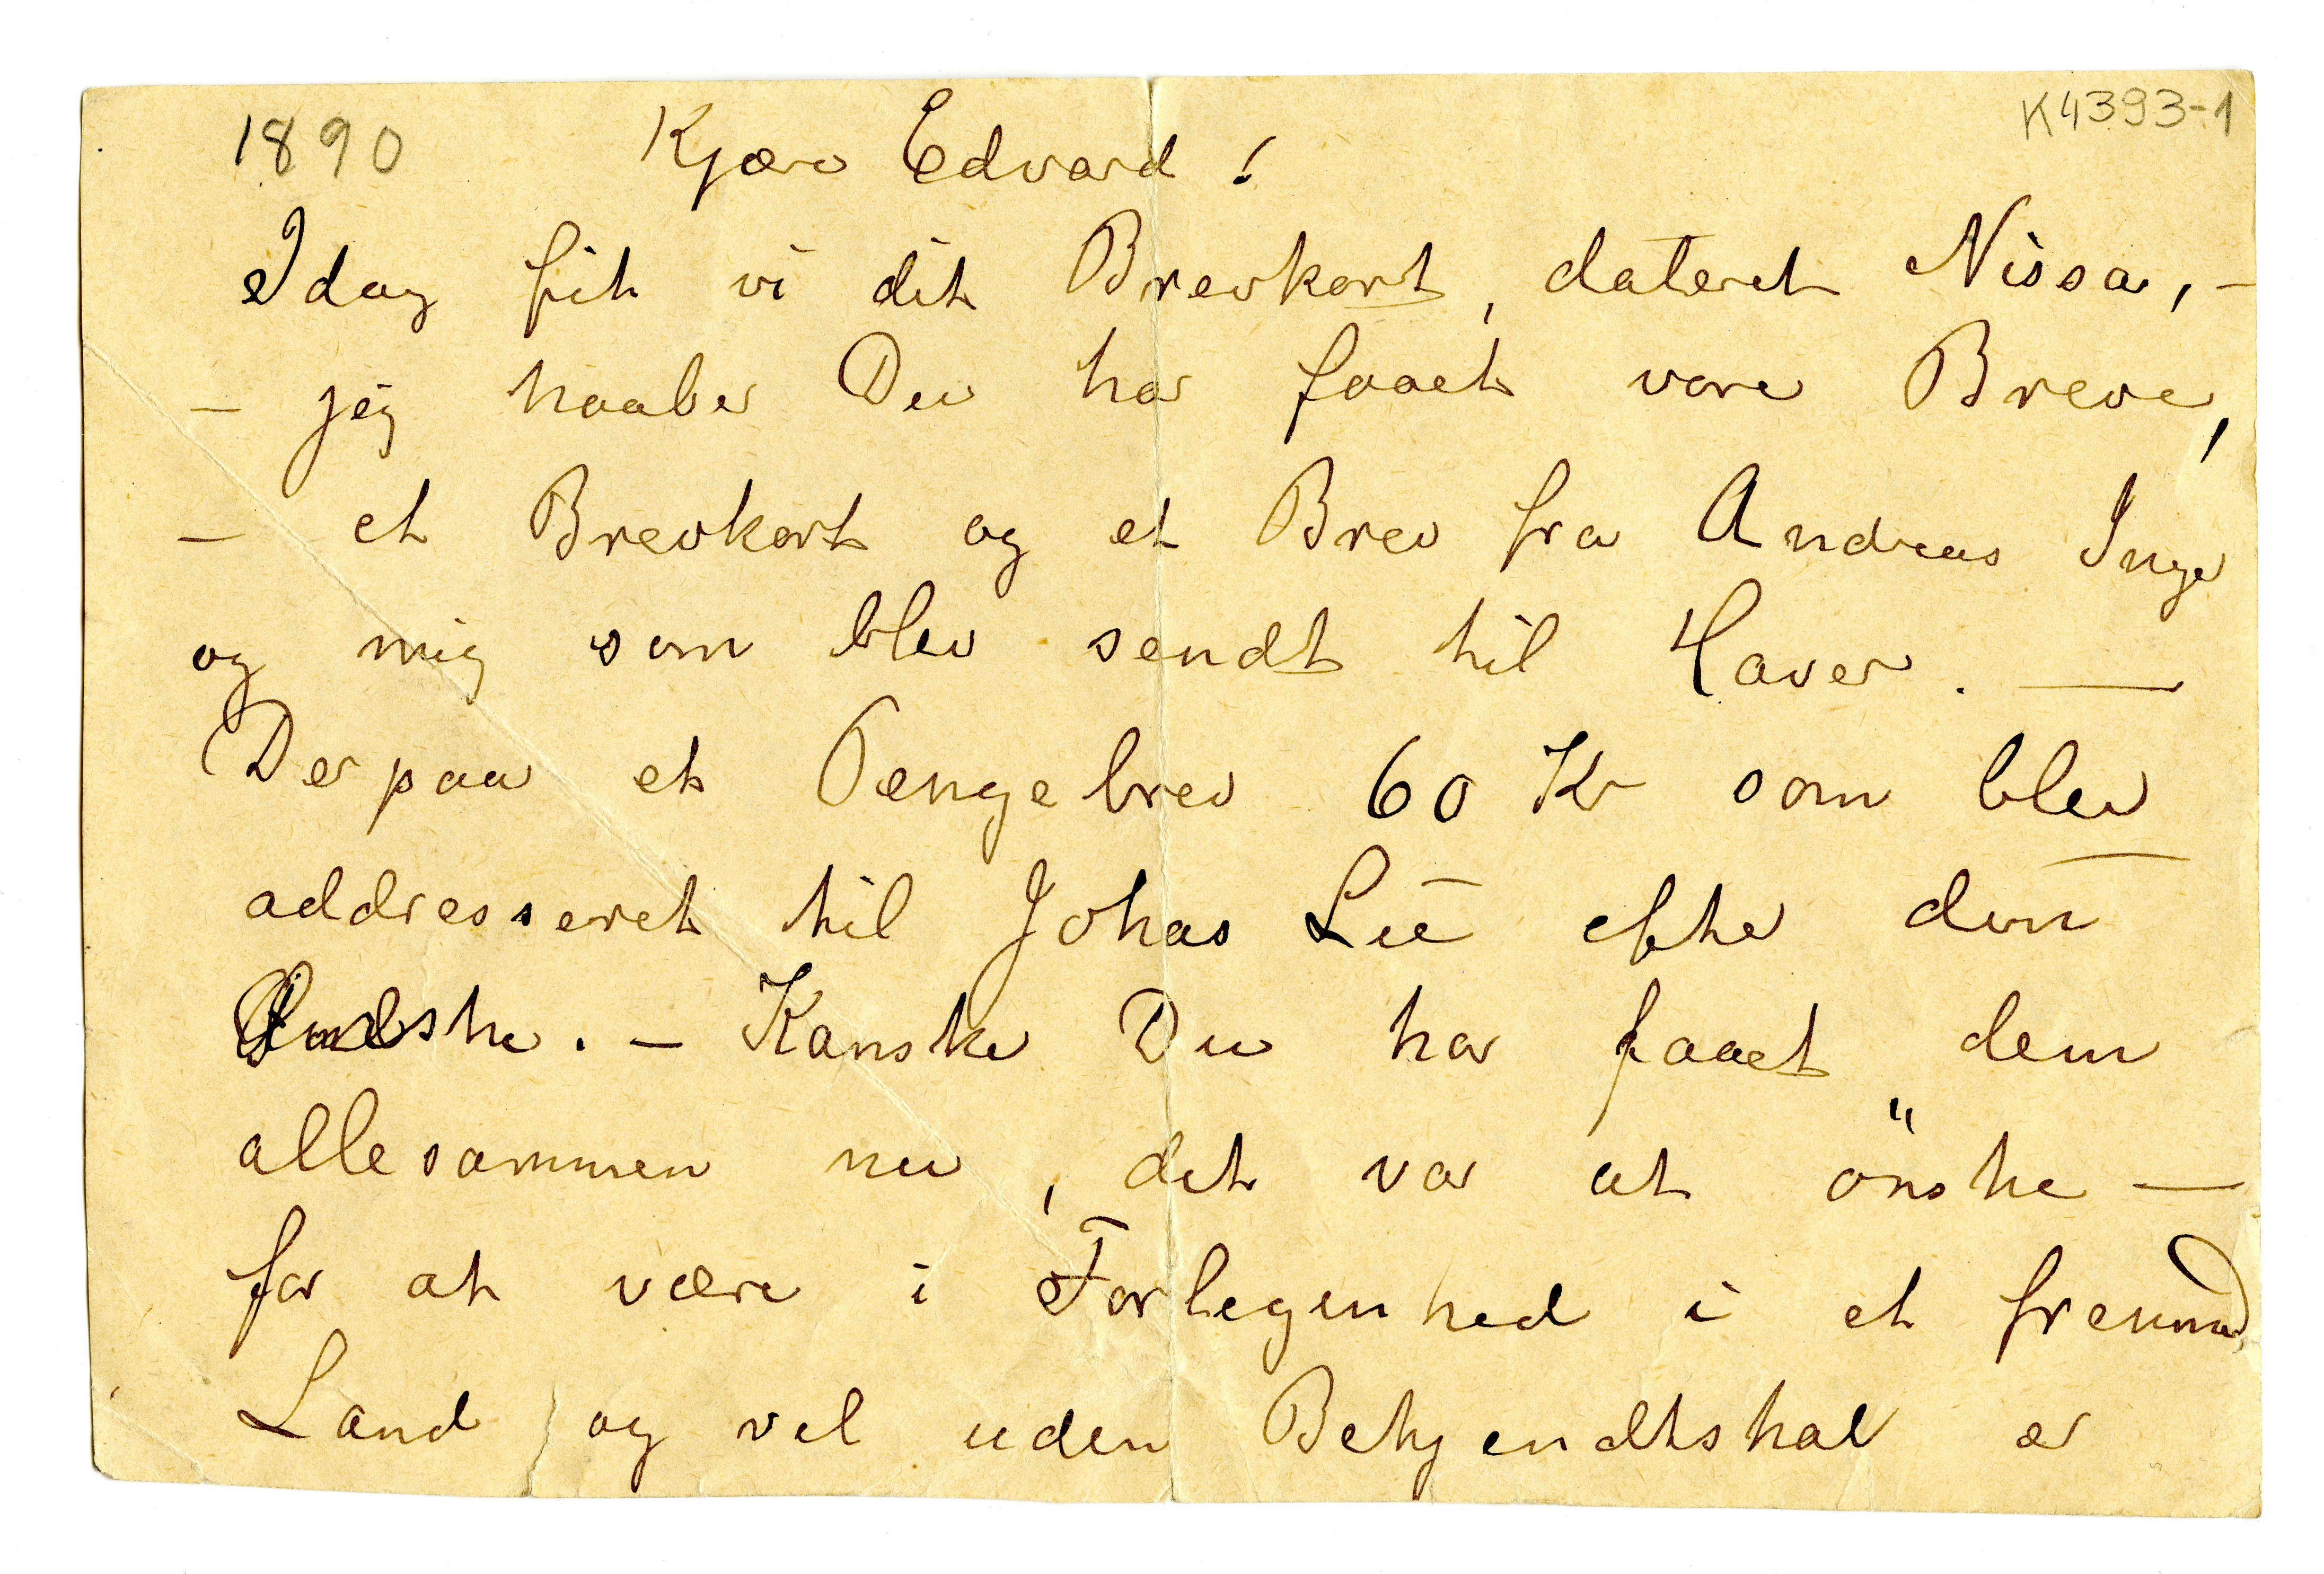 1890 Kjære Edvard! K4393-1
Idag fik vi dit Brevkort, dateret Nissa, –
– jeg haaber Du har faaet vore Breve,
– et Brevkort og et Brev fra Andreas Inger
og mig som blev sendt til Haver. —
Derpaa et Pengebrev 60 Kr som blev
addresseret til Johas Lie efter din
Önske. – Kanske Du har faaet dem
allesammen nu, det var at önske —
for at være i Forlegenhed i et fremmed
Land og vel uden Bekjendtskab er